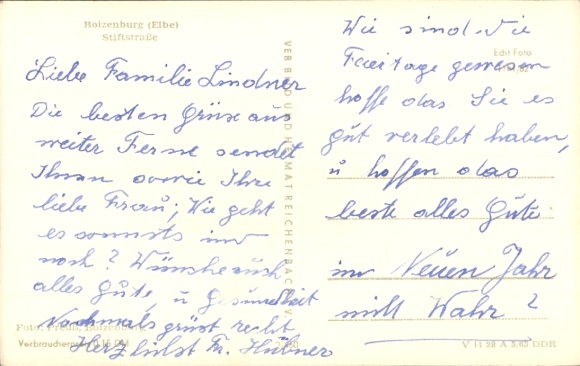 Boizenburg (Elbe)
Stiftstraße
Liebe Familie Lindner
Die besten Grüse aus
weiter Ferne sendet
Ihnen sowie Ihre
liebe Frau; Wie geht
es sonnsts
noch? Wünsche auch
alles Gute, u Gesundheit
Nochmals grüst recht
Herzlichst Fr. Hübner
Foto: Boizenburg
Verbraucherpreis 0,15 DM
VEB BILD UND HEIMAT REICHENBACH I. V.
Wie sind die
Feiertage gewesen
hoffe das Sie es
gut verlebt haben,
u hoffen das
beste alles Gute
im Neuen Jahr
mitt Wahr?
Echt Foto
V 11 28 A 3/63 DDR